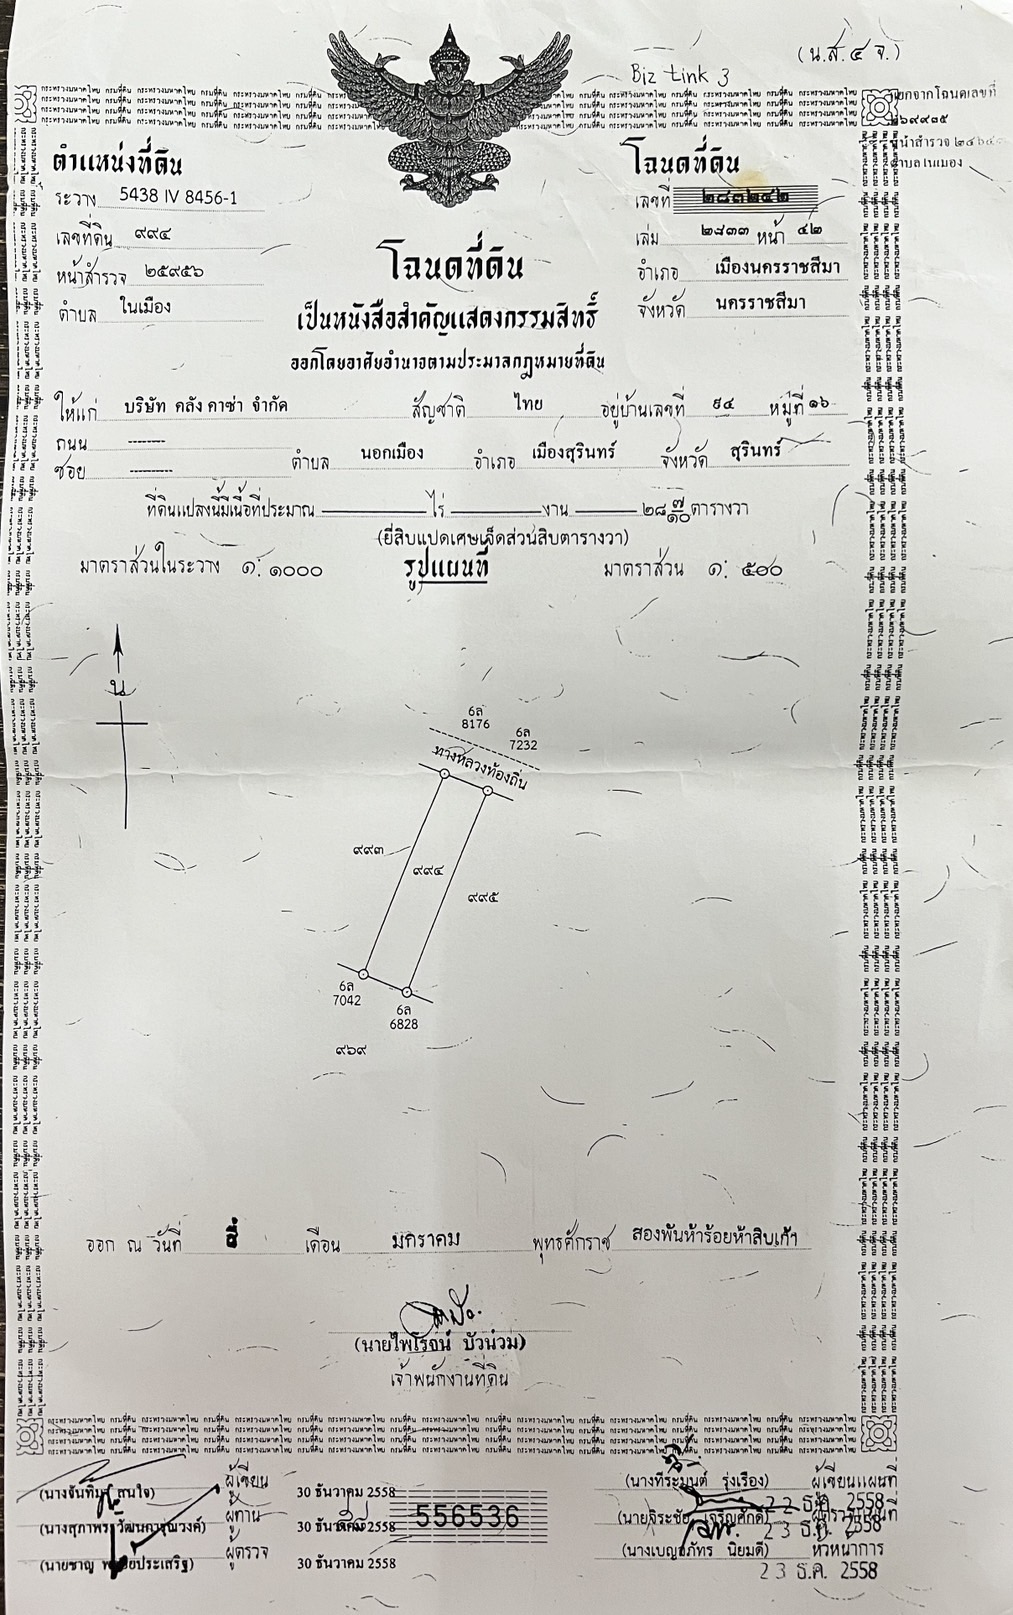 (น.ส.๔ จ.)
Biz Link 3
ตำแหน่งที่ดิน
ระวาง 5438 IV 8456-1
เลขที่ดิน ๙๙๔
หน้าสำรวจ ๒๕๙๕๖
ตำบล ในเมือง
โฉนดที่ดิน
เลขที่ ๒๘๓๒๔๒
เล่ม ๒๘๓๓ หน้า ๔๒
อำเภอ เมืองนครราชสีมา
จังหวัด นครราชสีมา
โฉนดที่ดิน
เป็นหนังสือสำคัญแสดงกรรมสิทธิ์
ออกโดยอาศัยอำนาจตามประมวลกฎหมายที่ดิน
ให้แก่ บริษัท คลัง คาซ่า จำกัด สัญชาติ ไทย อยู่บ้านเลขที่ ๙๔ หมู่ที่ ๑๖
ถนน --------
ซอย -------- ตำบล นอกเมือง อำเภอ เมืองสุรินทร์ จังหวัด สุรินทร์
ที่ดินแปลงนี้มีเนื้อที่ประมาณ ไร่ งาน ๒๘ ๗/๑๐ ตารางวา
(ยี่สิบแปดเศษเจ็ดส่วนสิบตารางวา)
มาตราส่วนในระวาง ๑: ๑๐๐๐ รูปแผนที่ มาตราส่วน ๑: ๕๐๐
น
6ล
8176
6ล
7232
ทางหลวงท้องถิ่น
๙๙๓
๙๙๔
๙๙๕
6ล
7042
6ล
6828
๙๖๙
ออก ณ วันที่ สี่ เดือน มกราคม พุทธศักราช สองพันห้าร้อยห้าสิบเก้า
(นายไพโรจน์ บัวน่วม)
เจ้าพนักงานที่ดิน
ผู้เขียน 30 ธันวาคม 2558
ผู้ทาน 30 ธันวาคม 2558
ผู้ตรวจ 30 ธันวาคม 2558
556536
(นางทีระมนต์ รุ่งเรือง) ผู้เขียนแผนที่
22 ธ.ค. 2558
23 ธ.ค. 2558
หัวหน้าการ
23 ธ.ค. 2558